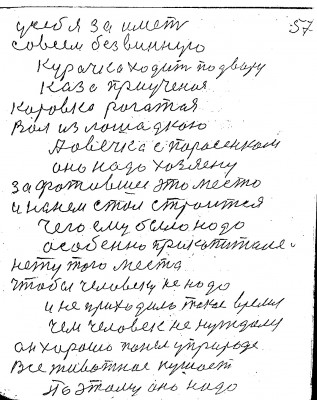 57
себя заимет
совсем безвинную
Курочка ходит по двору
Каза приученая
Коровка рогатая
Вол из лошадкою
А овечка с поросенком
оно надо хозяену
захватовши это место
и на нем стал строится
Чего ему было надо
особенно при капитале.
нету того места
Чтобы человеку не надо
и не приходило такое время
Чем человек не нуждалу
он хорошо понел уприроде
Все животное кушает
Поэтому оно надо